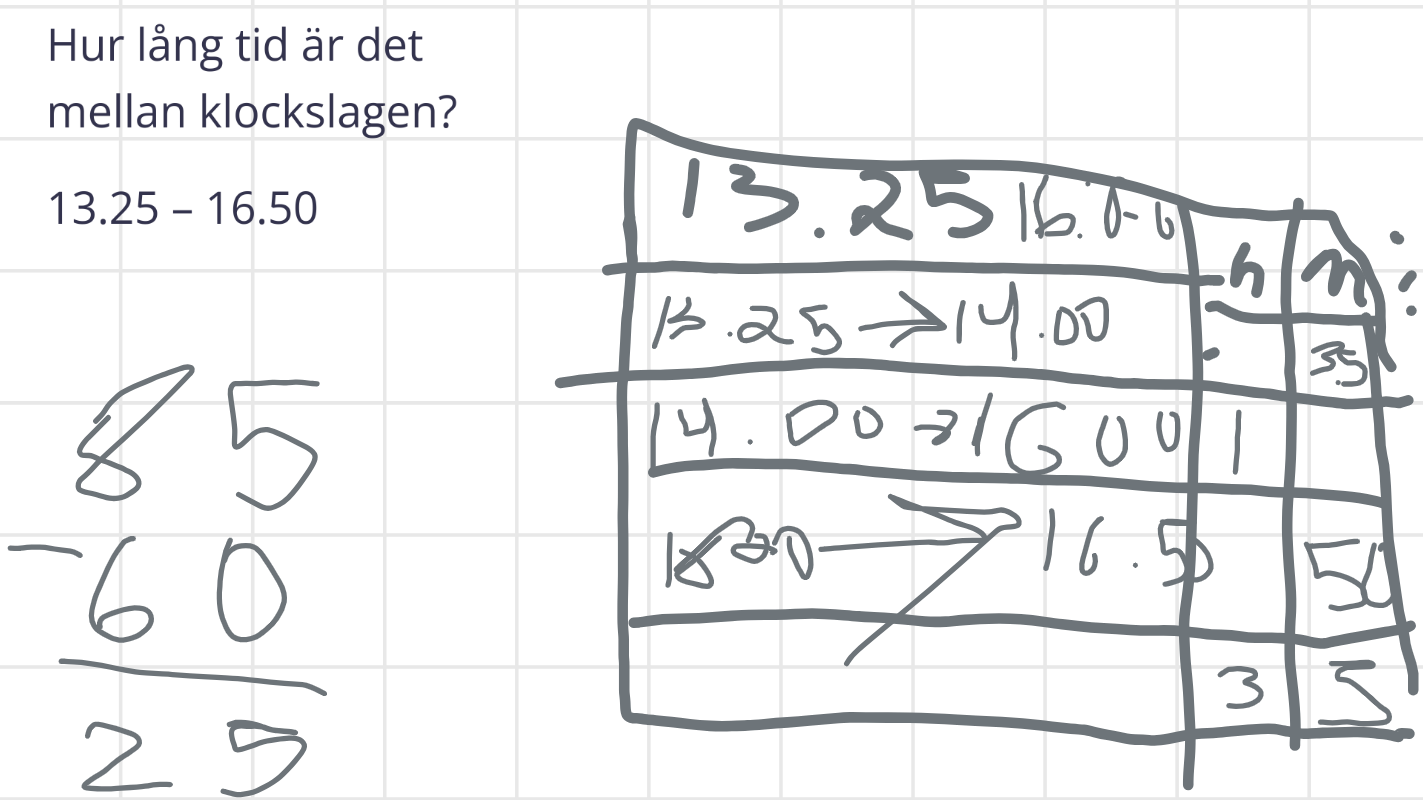 Hur lång tid är det
mellan klockslagen?
13.25 – 16.50
85
- 60
25
13.25 16.
h m
13.25 → 14.00 35
14.00 → 16 00 1
→ 16.5 50
3